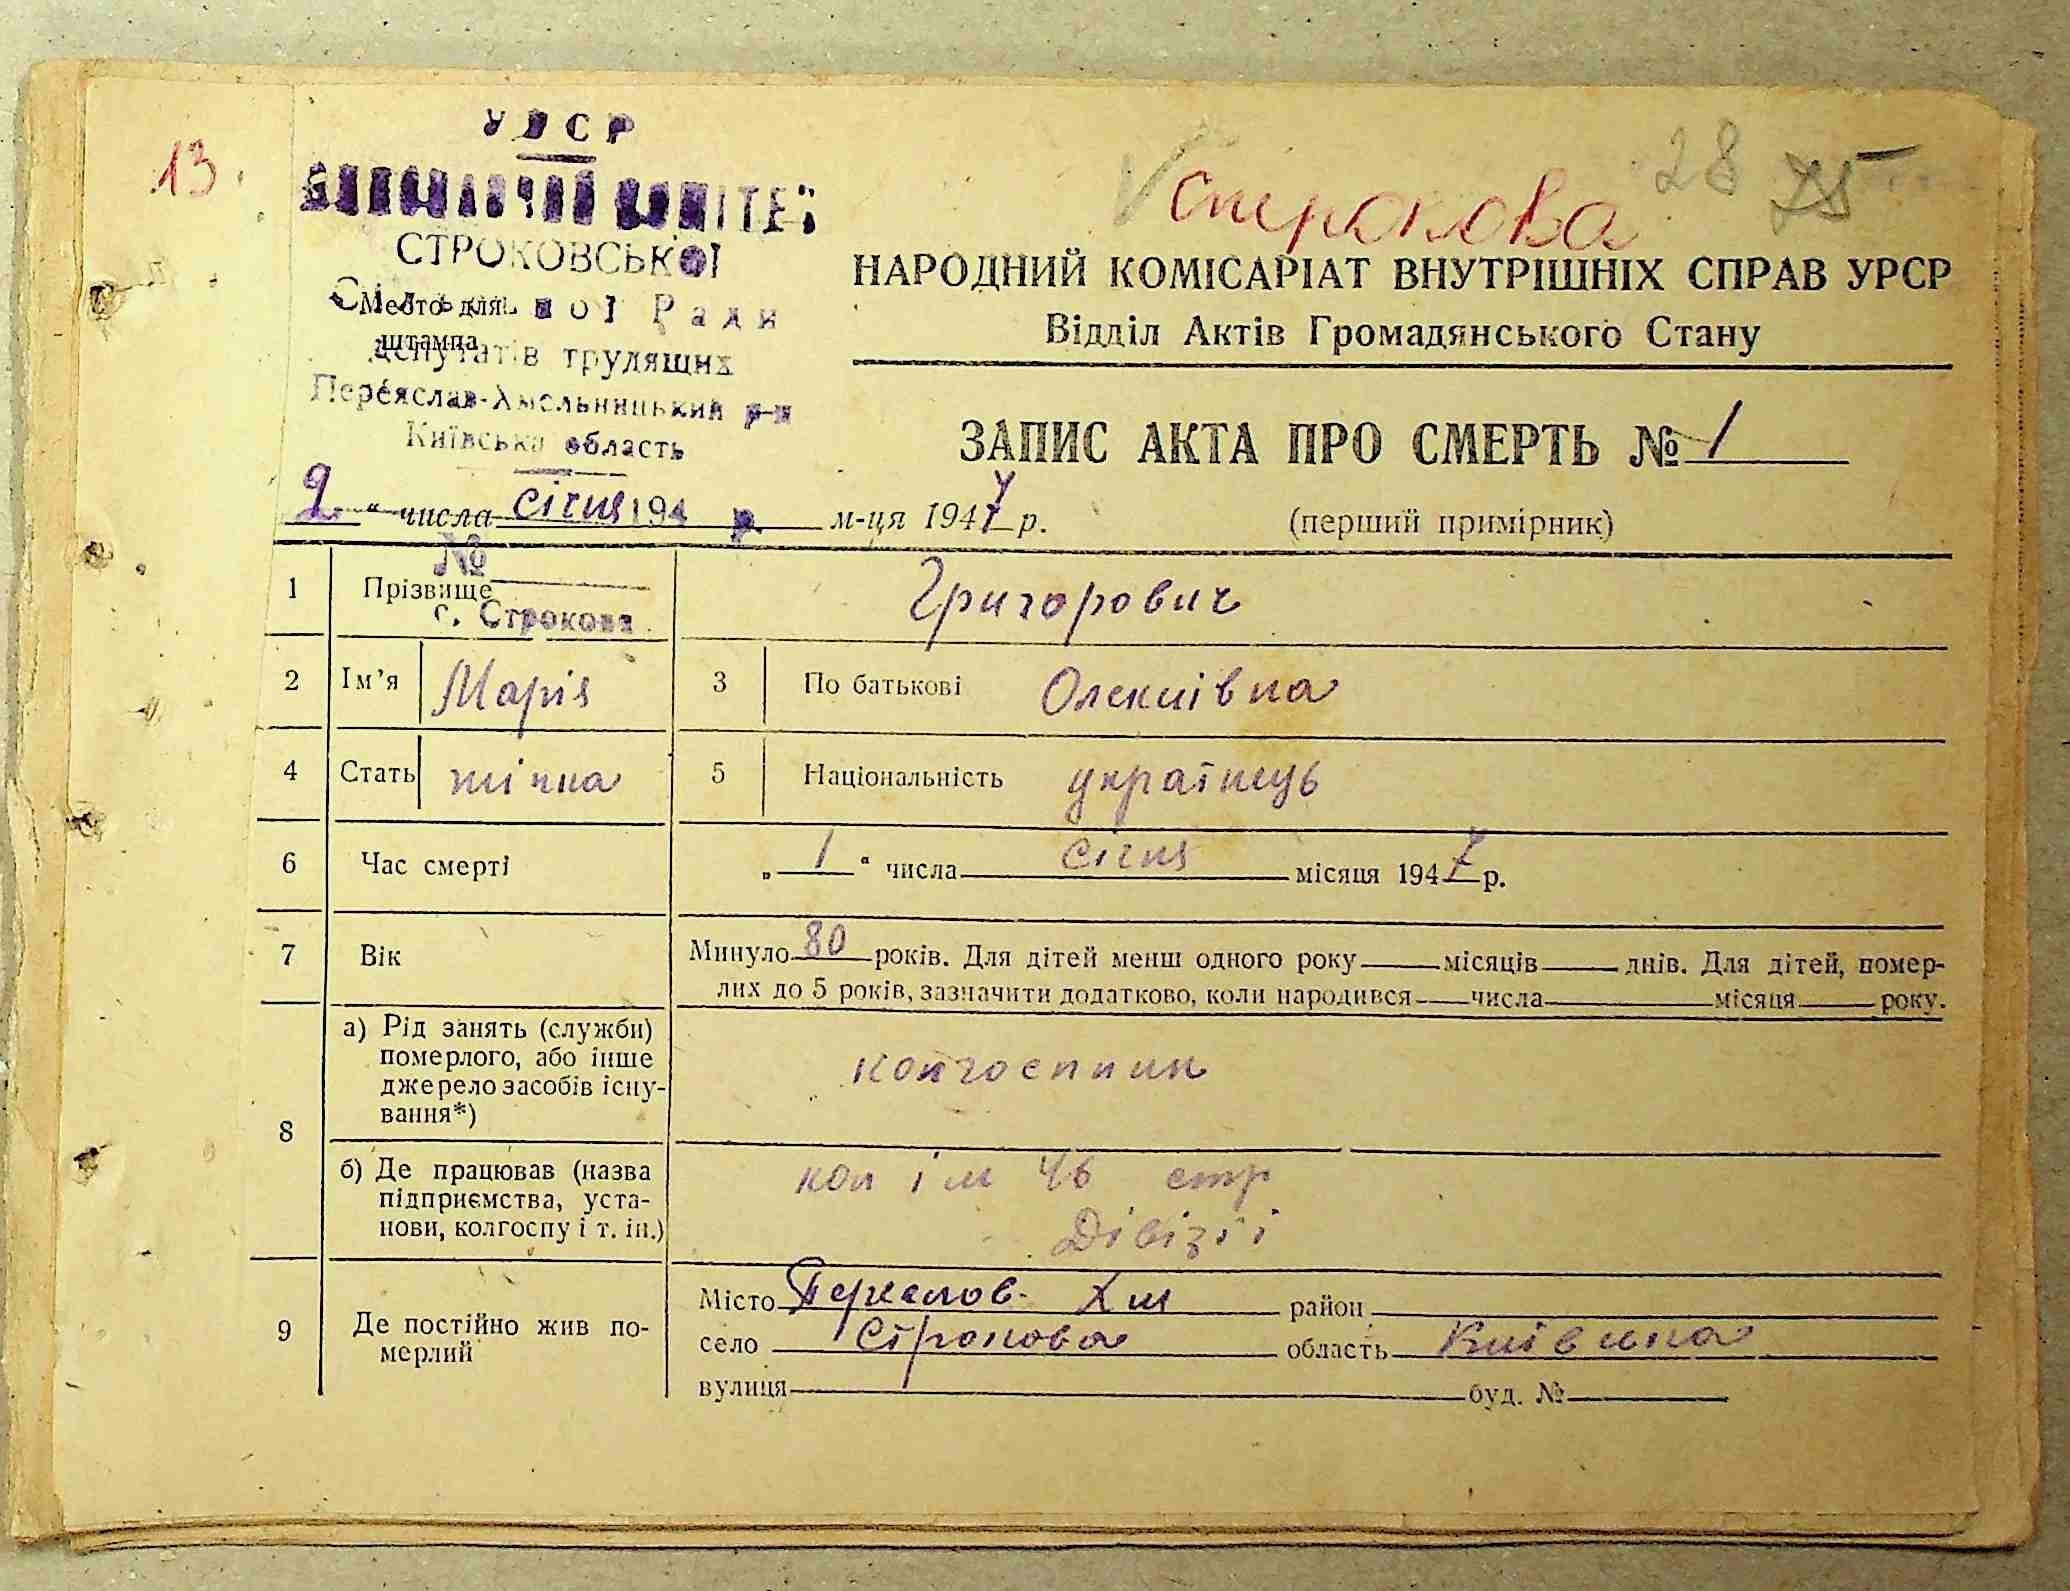 13.
УРСР
ВИКОНАВЧИЙ КОМІТЕТ
СТРОКОВСЬКОЇ
Сільської Ради
Место для
штампа
депутатів трудящих
Переяслав-Хмельницький р-н
Київська область
194 р.
№
с. Строкова
Строкова
28 75
НАРОДНИЙ КОМІСАРІАТ ВНУТРІШНІХ СПРАВ УРСР
Відділ Актів Громадянського Стану
ЗАПИС АКТА ПРО СМЕРТЬ № 1
2 " числа січня м-ця 1947 р. (перший примірник)
1 Прізвище Григорович
2 Ім'я Марія 3 По батькові Олексіївна
4 Стать жіноча 5 Національність українець
6 Час смерті „ 1 " числа січня місяця 1947 р.
7 Вік Минуло 80 років. Для дітей менш одного року місяців днів. Для дітей, помер-
лих до 5 років, зазначити додатково, коли народився числа місяця року.
8 а) Рід занять (служби)
померлого, або інше
джерело засобів існу-
вання*)
колгоспник
б) Де працював (назва
підприємства, уста-
нови, колгоспу і т. ін.)
кол ім 46 стр
Дівізії
9 Де постійно жив по-
мерлий
Місто Переяслов-Хм район
село Строкова область Київська
вулиця буд. №